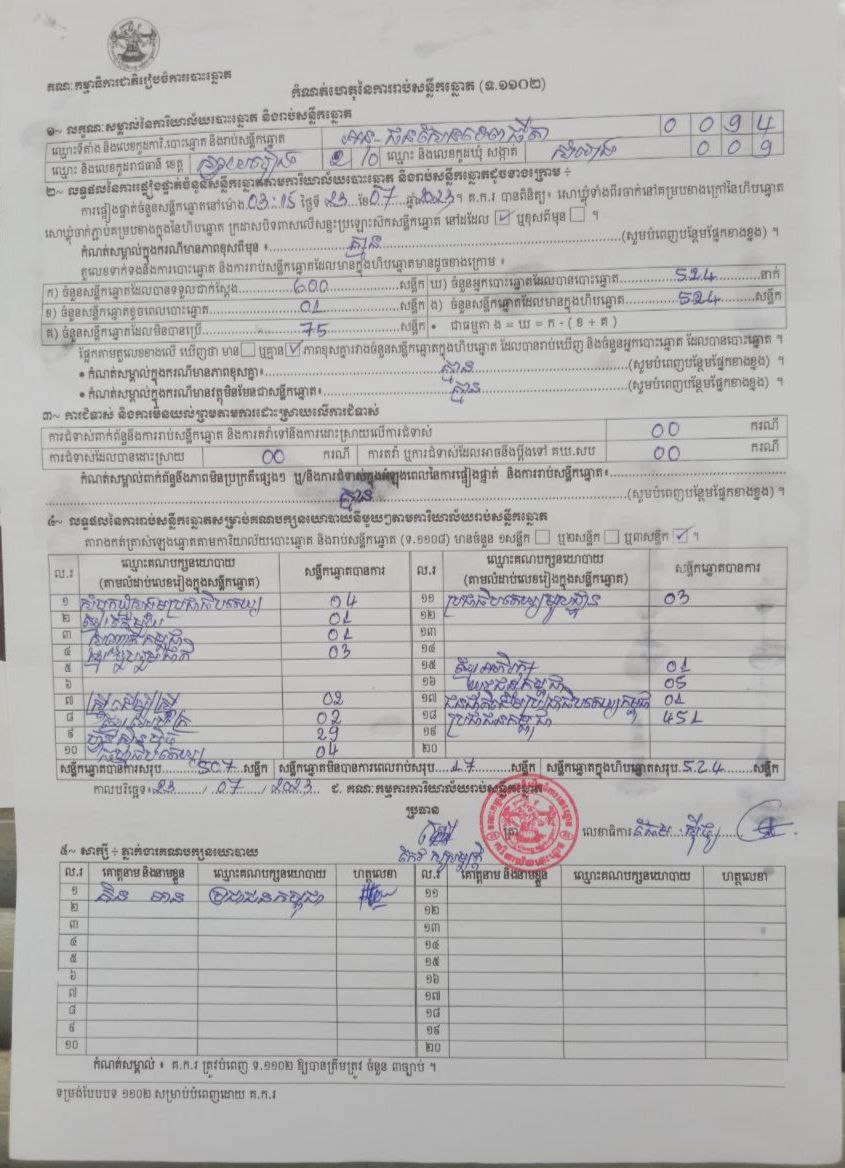 គណៈកម្មាធិការជាតិរៀបចំការបោះឆ្នោត
កំណត់ហេតុនៃការរាប់សន្លឹកឆ្នោត (ទ.១១០២)
១~ លក្ខណៈសម្គាល់នៃការិយាល័យបោះឆ្នោត និងរាប់សន្លឹកឆ្នោត
ឈ្មោះទីតាំង និងលេខកូដការិ.បោះឆ្នោត និងរាប់សន្លឹកឆ្នោត 0 0 9 4
ឈ្មោះ និងលេខកូដរាជធានី ខេត្ត ស្វាយរៀង 2 0 ឈ្មោះ និងលេខកូដឃុំ សង្កាត់ 0 0 9
២~ លទ្ធផលនៃការផ្ទៀងផ្ទាត់ចំនួនសន្លឹកឆ្នោតតាមការិយាល័យបោះឆ្នោត និងរាប់សន្លឹកឆ្នោតដូចខាងក្រោម ÷
ការផ្ទៀងផ្ទាត់ចំនួនសន្លឹកឆ្នោតនៅម៉ោង 03:15 ថ្ងៃទី 23 ខែ 07 ឆ្នាំ 2023 ។ គ.ក.រ បានពិនិត្យ៖ សោឃ្មុំទាំងពីរចាក់នៅគម្របខាងក្រៅនៃហិបឆ្នោត
សោឃ្មុំចាក់ភ្ជាប់គម្របខាងក្នុងនៃហិបឆ្នោត ក្រដាសបិទពាសលើសន្ទះប្រឡោះសិកសន្លឹកឆ្នោត នៅដដែល ☑ ឬខុសពីមុន ☐ ។
កំណត់សម្គាល់ក្នុងករណីមានភាពខុសពីមុន ៖ គ្មាន (សូមបំពេញបន្ថែមផ្នែកខាងខ្នង) ។
តួលេខទាក់ទងនឹងការបោះឆ្នោត និងការរាប់សន្លឹកឆ្នោតដែលមានក្នុងហិបឆ្នោតមានដូចខាងក្រោម ៖
ក) ចំនួនសន្លឹកឆ្នោតដែលបានទទួលជាក់ស្តែង 600 សន្លឹក ឃ) ចំនួនអ្នកបោះឆ្នោតដែលបានបោះឆ្នោត 524 នាក់
ខ) ចំនួនសន្លឹកឆ្នោតខូចពេលបោះឆ្នោត 01 សន្លឹក ង) ចំនួនសន្លឹកឆ្នោតដែលមានក្នុងហិបឆ្នោត 524 សន្លឹក
គ) ចំនួនសន្លឹកឆ្នោតដែលមិនបានប្រើ 75 សន្លឹក • ជាធម្មតា ង = ឃ = ក - ( ខ + គ )
ផ្អែកតាមតួលេខខាងលើ ឃើញថា មាន ☐ ឬគ្មាន ☑ ភាពខុសគ្នារវាងចំនួនសន្លឹកឆ្នោតក្នុងហិបឆ្នោត ដែលបានរាប់ឃើញ និងចំនួនអ្នកបោះឆ្នោត ដែលបានបោះឆ្នោត ។
• កំណត់សម្គាល់ក្នុងករណីមានភាពខុសគ្នា៖ គ្មាន (សូមបំពេញបន្ថែមផ្នែកខាងខ្នង) ។
• កំណត់សម្គាល់ក្នុងករណីមានវត្ថុមិនមែនជាសន្លឹកឆ្នោត៖ គ្មាន (សូមបំពេញបន្ថែមផ្នែកខាងខ្នង) ។
៣~ ការជំទាស់ និងការមិនយល់ព្រមតាមការដោះស្រាយលើការជំទាស់
ការជំទាស់ពាក់ព័ន្ធនឹងការរាប់សន្លឹកឆ្នោត និងការតវ៉ាទៅនឹងការដោះស្រាយលើការជំទាស់ 00 ករណី
ការជំទាស់ដែលបានដោះស្រាយ 00 ករណី ការតវ៉ា ឬការជំទាស់ដែលអាចនឹងប្តឹងទៅ គឃ.សប 00 ករណី
កំណត់សម្គាល់ពាក់ព័ន្ធនឹងភាពមិនប្រក្រតីផ្សេងៗ ឬ/និងការជំទាស់ក្នុងអំឡុងពេលនៃការផ្ទៀងផ្ទាត់ និងការរាប់សន្លឹកឆ្នោត៖
គ្មាន (សូមបំពេញបន្ថែមផ្នែកខាងខ្នង) ។
៤~ លទ្ធផលនៃការរាប់សន្លឹកឆ្នោតសម្រាប់គណបក្សនយោបាយនីមួយៗតាមការិយាល័យរាប់សន្លឹកឆ្នោត
តារាងកត់ត្រាសំឡេងឆ្នោតតាមការិយាល័យបោះឆ្នោត និងរាប់សន្លឹកឆ្នោត (ទ.១១០៨) មានចំនួន ១សន្លឹក ☐ ឬ២សន្លឹក ☐ ឬ៣សន្លឹក ☑ ។
ល.រ ឈ្មោះគណបក្សនយោបាយ (តាមលំដាប់លេខរៀងក្នុងសន្លឹកឆ្នោត) សន្លឹកឆ្នោតបានការ ល.រ ឈ្មោះគណបក្សនយោបាយ (តាមលំដាប់លេខរៀងក្នុងសន្លឹកឆ្នោត) សន្លឹកឆ្នោតបានការ
១ សំបុកឃ្មុំសង្គមប្រជាធិបតេយ្យ 04 ១១ ប្រជាធិបតេយ្យមូលដ្ឋាន 03
២ 01 ១២
៣ 01 ១៣
៤ ខ្មែររួបរួមជាតិ 03 ១៤
៥ ១៥ ខ្មែរអភិរក្ស 01
៦ ១៦ យុវជនកម្ពុជា 05
៧ ស្ត្រីដើម្បីស្ត្រី 02 ១៧ ជនជាតិដើមប្រជាធិបតេយ្យកម្ពុជា 01
៨ 02 ១៨ ប្រជាជនកម្ពុជា 451
៩ ហ៊្វុនស៊ិនប៉ិច 29 ១៩
១០ កម្លាំងប្រជាធិបតេយ្យ 04 ២០
សន្លឹកឆ្នោតបានការសរុប 507 សន្លឹក សន្លឹកឆ្នោតមិនបានការពេលរាប់សរុប 17 សន្លឹក សន្លឹកឆ្នោតក្នុងហិបឆ្នោតសរុប 524 សន្លឹក
កាលបរិច្ឆេទ៖ 23 / 07 / 2023 ជ. គណៈកម្មការការិយាល័យរាប់សន្លឹកឆ្នោត
ប្រធាន
ត្រា លេខាធិការ
៥~ សាក្សី ÷ ភ្នាក់ងារគណបក្សនយោបាយ
ល.រ គោត្តនាម និងនាមខ្លួន ឈ្មោះគណបក្សនយោបាយ ហត្ថលេខា ល.រ គោត្តនាម និងនាមខ្លួន ឈ្មោះគណបក្សនយោបាយ ហត្ថលេខា
១ ប្រជាជនកម្ពុជា ១១
២ ១២
៣ ១៣
៤ ១៤
៥ ១៥
៦ ១៦
៧ ១៧
៨ ១៨
៩ ១៩
១០ ២០
កំណត់សម្គាល់ ៖ គ.ក.រ ត្រូវបំពេញ ទ.១១០២ ឱ្យបានត្រឹមត្រូវ ចំនួន ៣ច្បាប់ ។
ទម្រង់បែបបទ ១១០២ សម្រាប់បំពេញដោយ គ.ក.រ